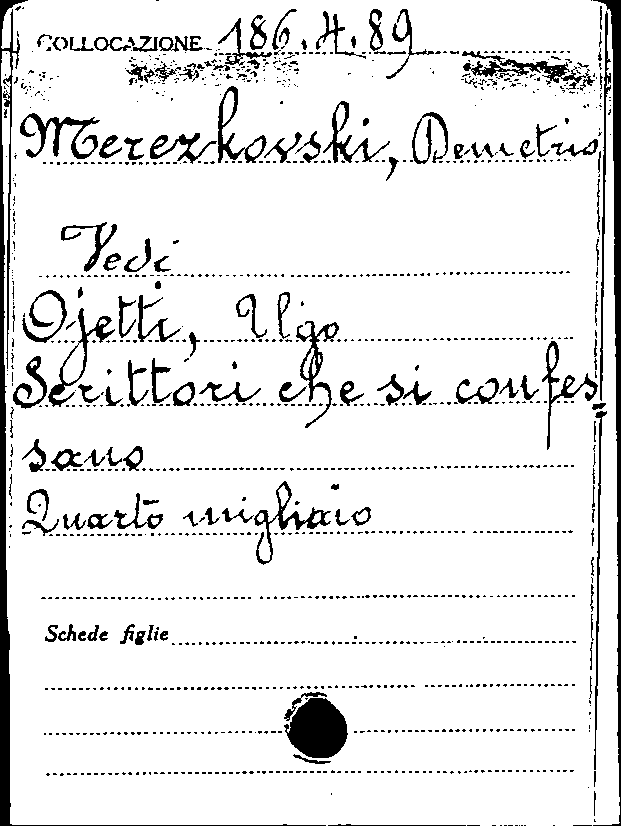 COLLOCAZIONE 186.4.89
Merezkovski, Demetrio
Vedi
Ojetti, Ugo
Scrittori che si confes=
sano
Quarto migliaio
Schede figlie